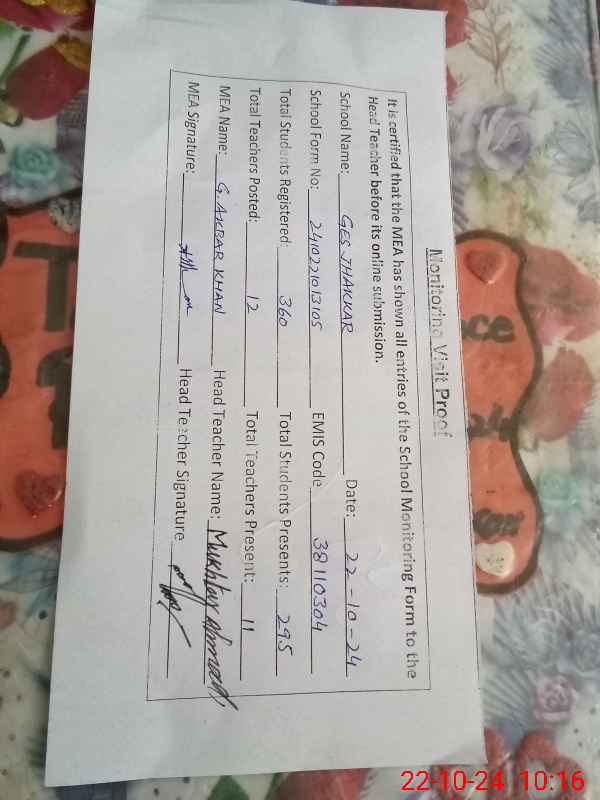 Monitoring Visit Proof
It is certified that the MEA has shown all entries of the School Monitoring Form to the
Head Teacher before its online submission.
School Name: GES JHAKKAR Date: 22-10-24
School Form No: 2410221013105 EMIS Code 38110304
Total Students Registered: 360 Total Students Presents: 295
Total Teachers Posted: 12 Total Teachers Present: 11
MEA Name: G. AKBAR KHAN Head Teacher Name: Mukhtar Ahmad
MEA Signature: Head Teacher Signature
22-10-24 10:16